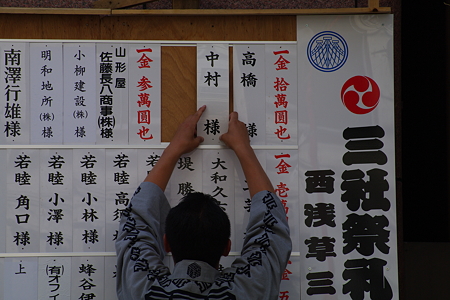 三社祭礼
西浅草三
一金拾萬圓也
高橋 様
中村 様
一金参萬圓也
山形屋
佐藤長八商事㈱様
小柳建設㈱様
明和地所㈱様
南澤行雄様
一金壱萬
大和久
堤
若睦
若睦 高須
若睦 小林 様
若睦 小澤 様
若睦 角口 様
一金五
蜂谷伊
㈲オフィ
上